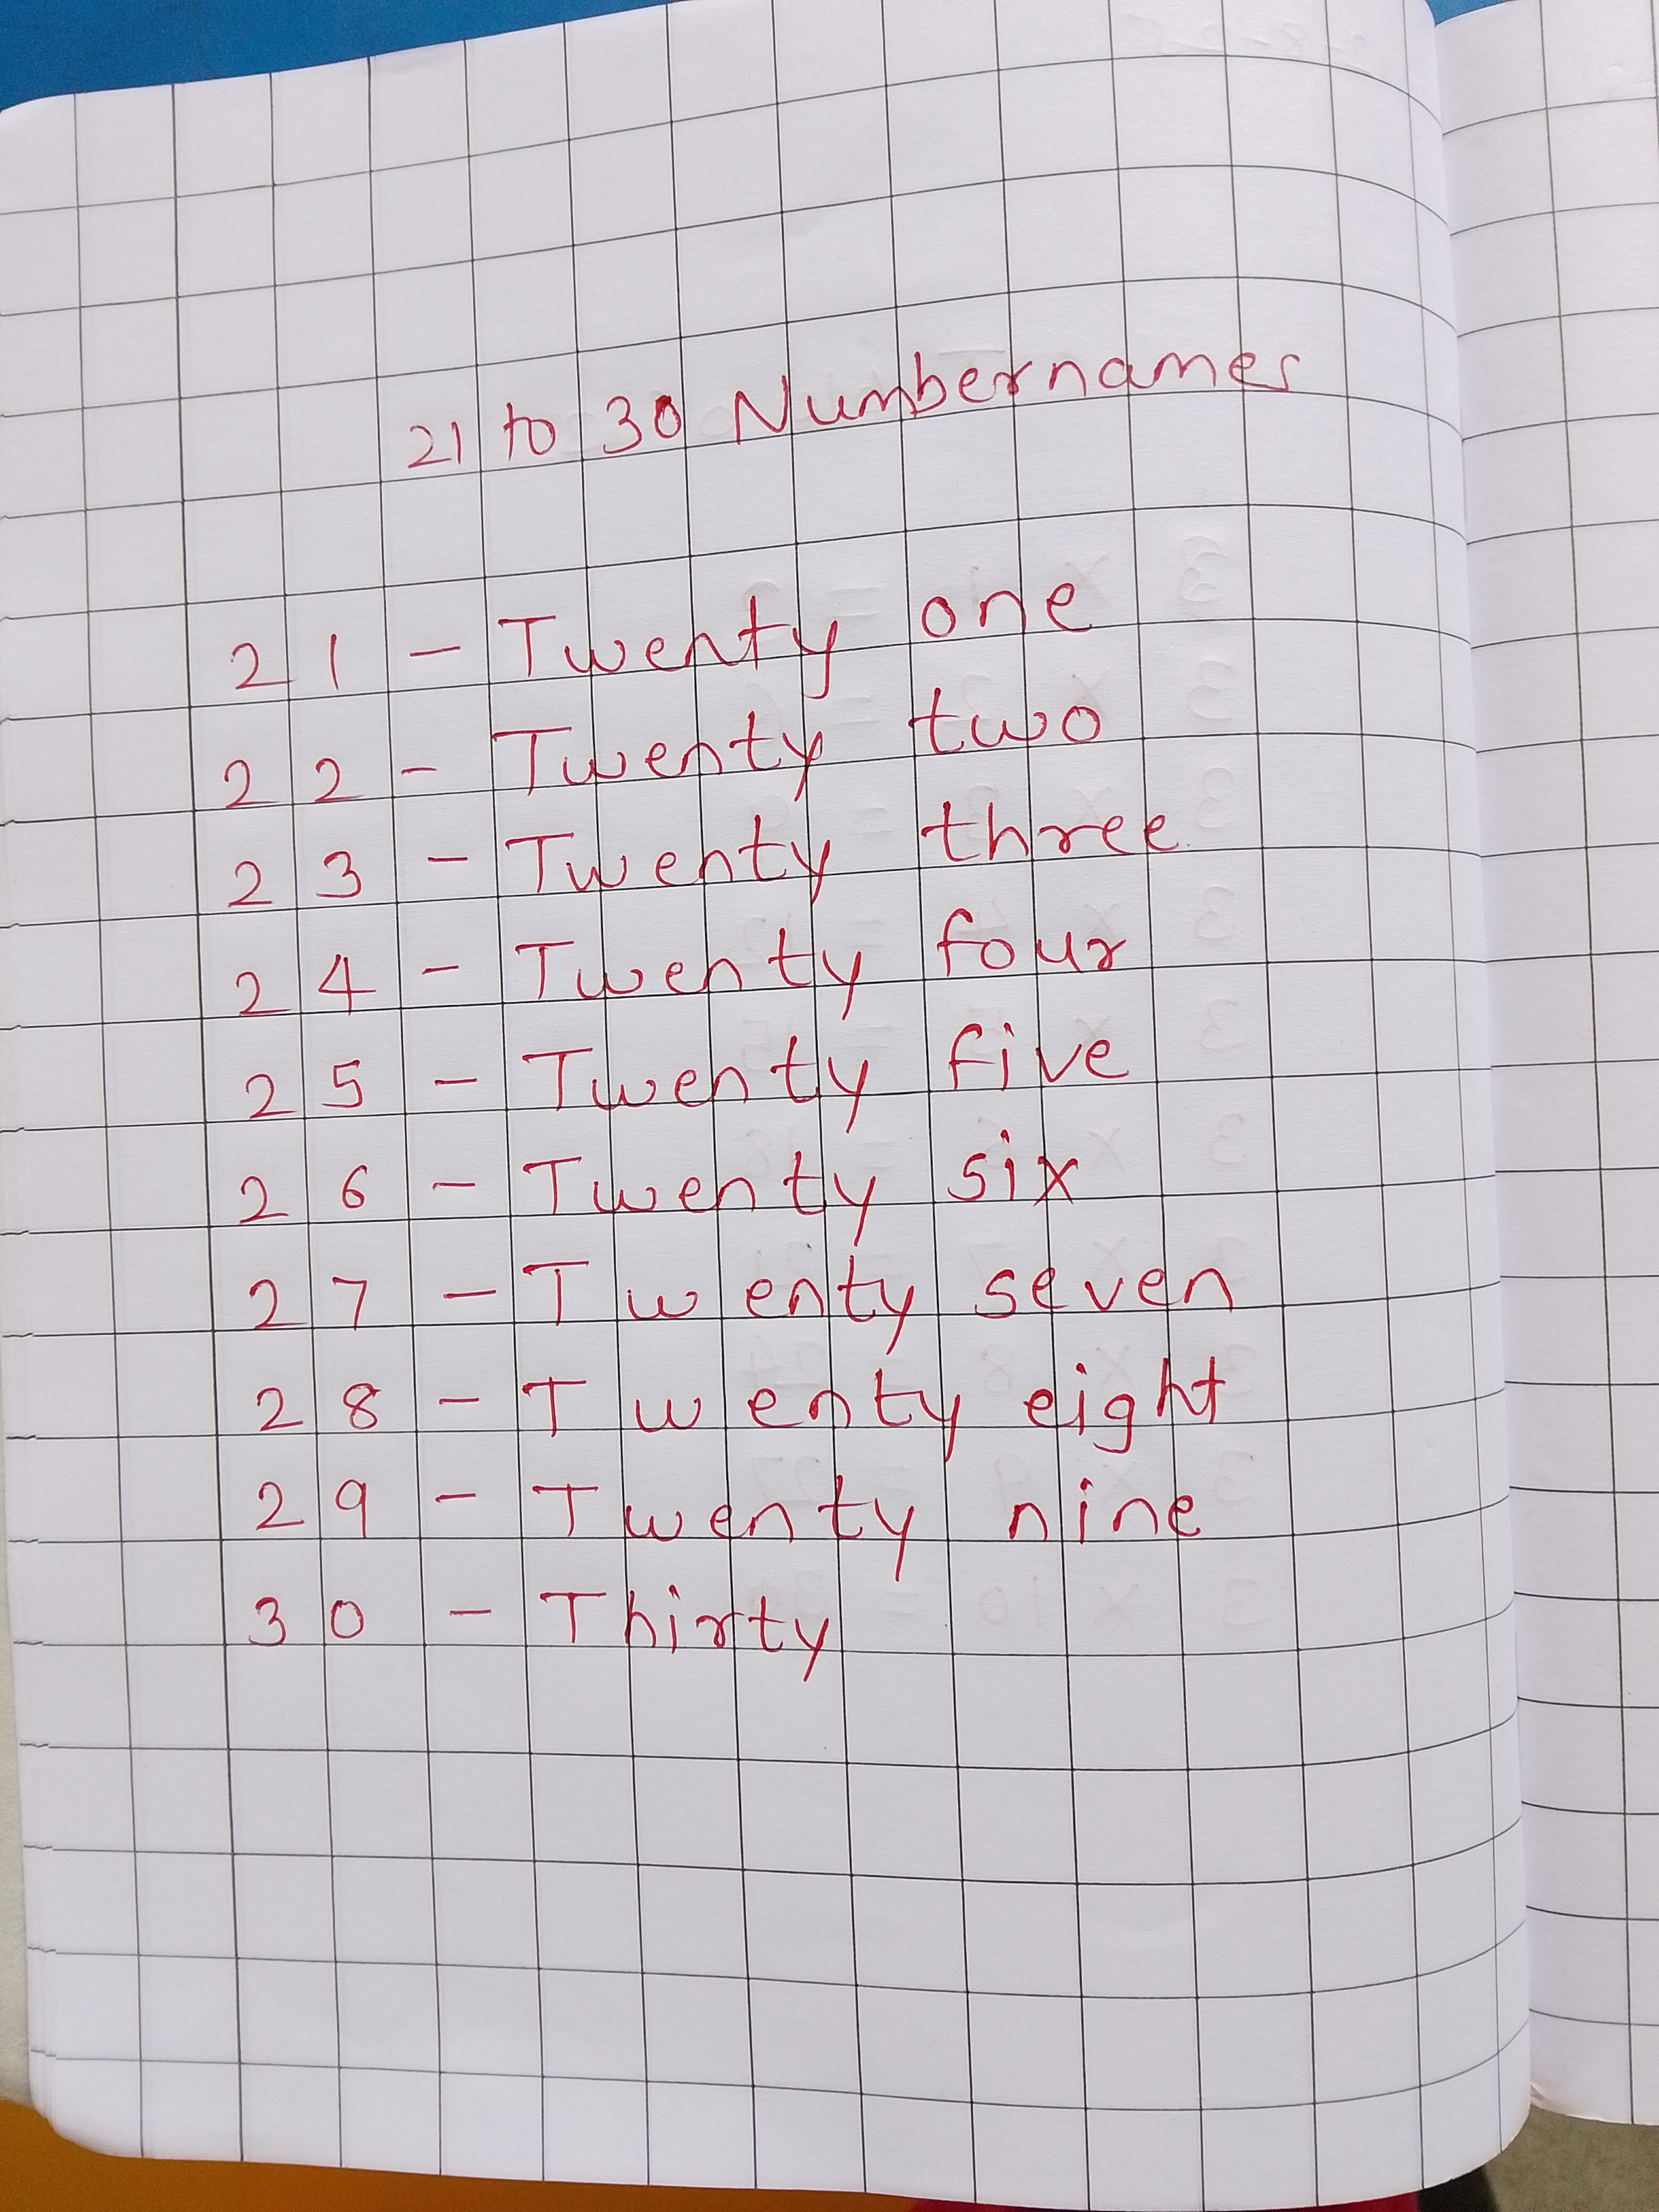 21 to 30 Numbernames
21 - Twenty one
22 - Twenty two
23 - Twenty three
24 - Twenty four
25 - Twenty five
26 - Twenty six
27 - Twenty seven
28 - Twenty eight
29 - Twenty nine
30 - Thirty